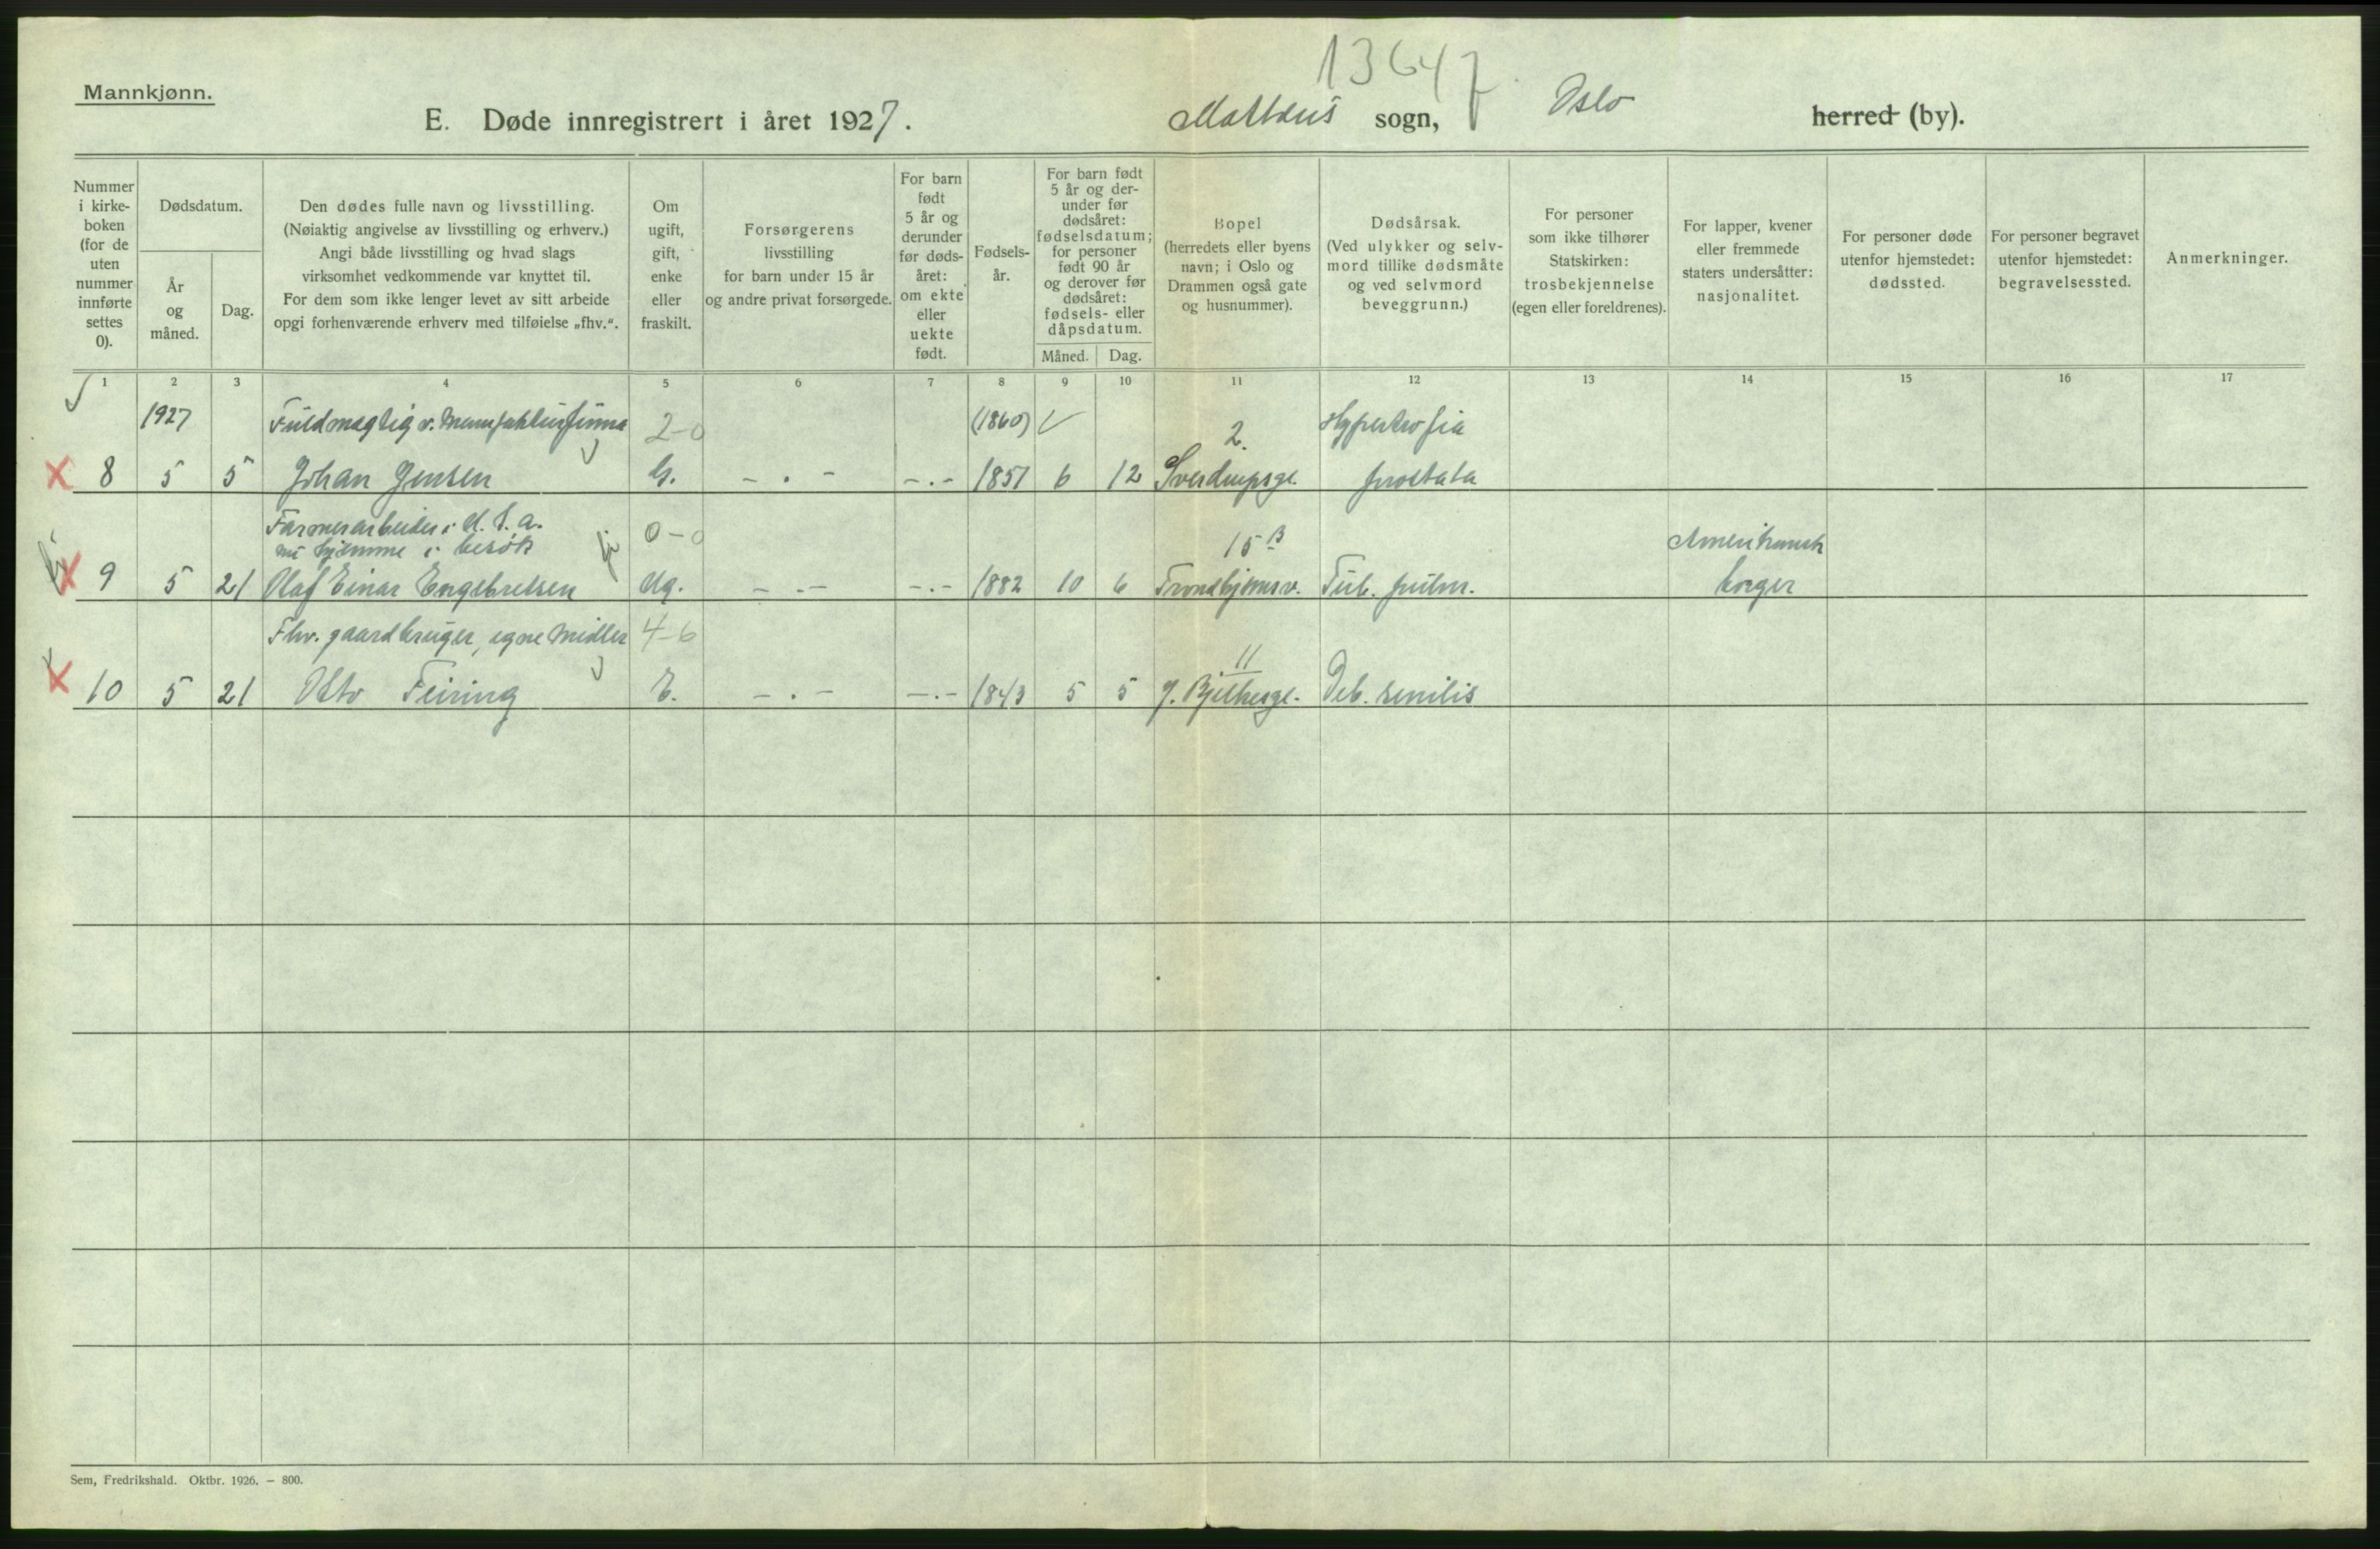 13647
Mannkjønn.
E. Døde innregistrert i året 1927. Mattæus sogn, Oslo herred (by).
Nummer i kirkeboken (for de uten nummer innførte settes 0).
Dødsdatum.
År og måned.
Dag.
Den dødes fulle navn og livsstilling.
(Nøiaktig angivelse av livsstilling og erhverv.)
Angi både livsstilling og hvad slags
virksomhet vedkommende var knyttet til.
For dem som ikke lenger levet av sitt arbeide
opgi forhenværende erhverv med tilføielse „fhv.“.
Om ugift, gift, enke eller fraskilt.
Forsørgerens
livsstilling
for barn under 15 år
og andre privat forsørgede.
For barn født 5 år og derunder før dødsåret: om ekte eller uekte født.
Fødselsår.
For barn født 5 år og derunder før dødsåret: fødselsdatum; for personer født 90 år og derover før dødsåret: fødsels- eller dåpsdatum.
Måned. Dag.
Bopel
(herredets eller byens
navn; i Oslo og
Drammen også gate
og husnummer).
Dødsårsak.
(Ved ulykker og selv-
mord tillike dødsmåte
og ved selvmord
beveggrunn.)
For personer
som ikke tilhører
Statskirken:
trosbekjennelse
(egen eller foreldrenes).
For lapper, kvener
eller fremmede
staters undersåtter:
nasjonalitet.
For personer døde
utenfor hjemstedet:
dødssted.
For personer begravet
utenfor hjemstedet:
begravelsessted.
Anmerkninger.
1 2 3 4 5 6 7 8 9 10 11 12 13 14 15 16 17
1927 Fuldmagtig v. Manufakturfirma 2-0 (1860) 2. Hypertrofia
8 5 5 Johan Jensen G. - . - - . - 1851 6 12 Sverdrupsgt. prostata
Farmerarbeider i U.S.A.
nu hjemme i besøk 0-0 15 B Amerikansk
9 5 21 Olaf Einar Engebretsen Ug. - . - - . - 1882 10 6 Trondhjemsv. Tub. pulm. borger
Fhv. gaardbruger, egne midler 4-6 11
10 5 21 Otto Feiring E. - . - - . - 1843 5 5 J. Bjelkesgt. Deb. senilis
Sem, Fredrikshald. Oktbr. 1926. – 800.